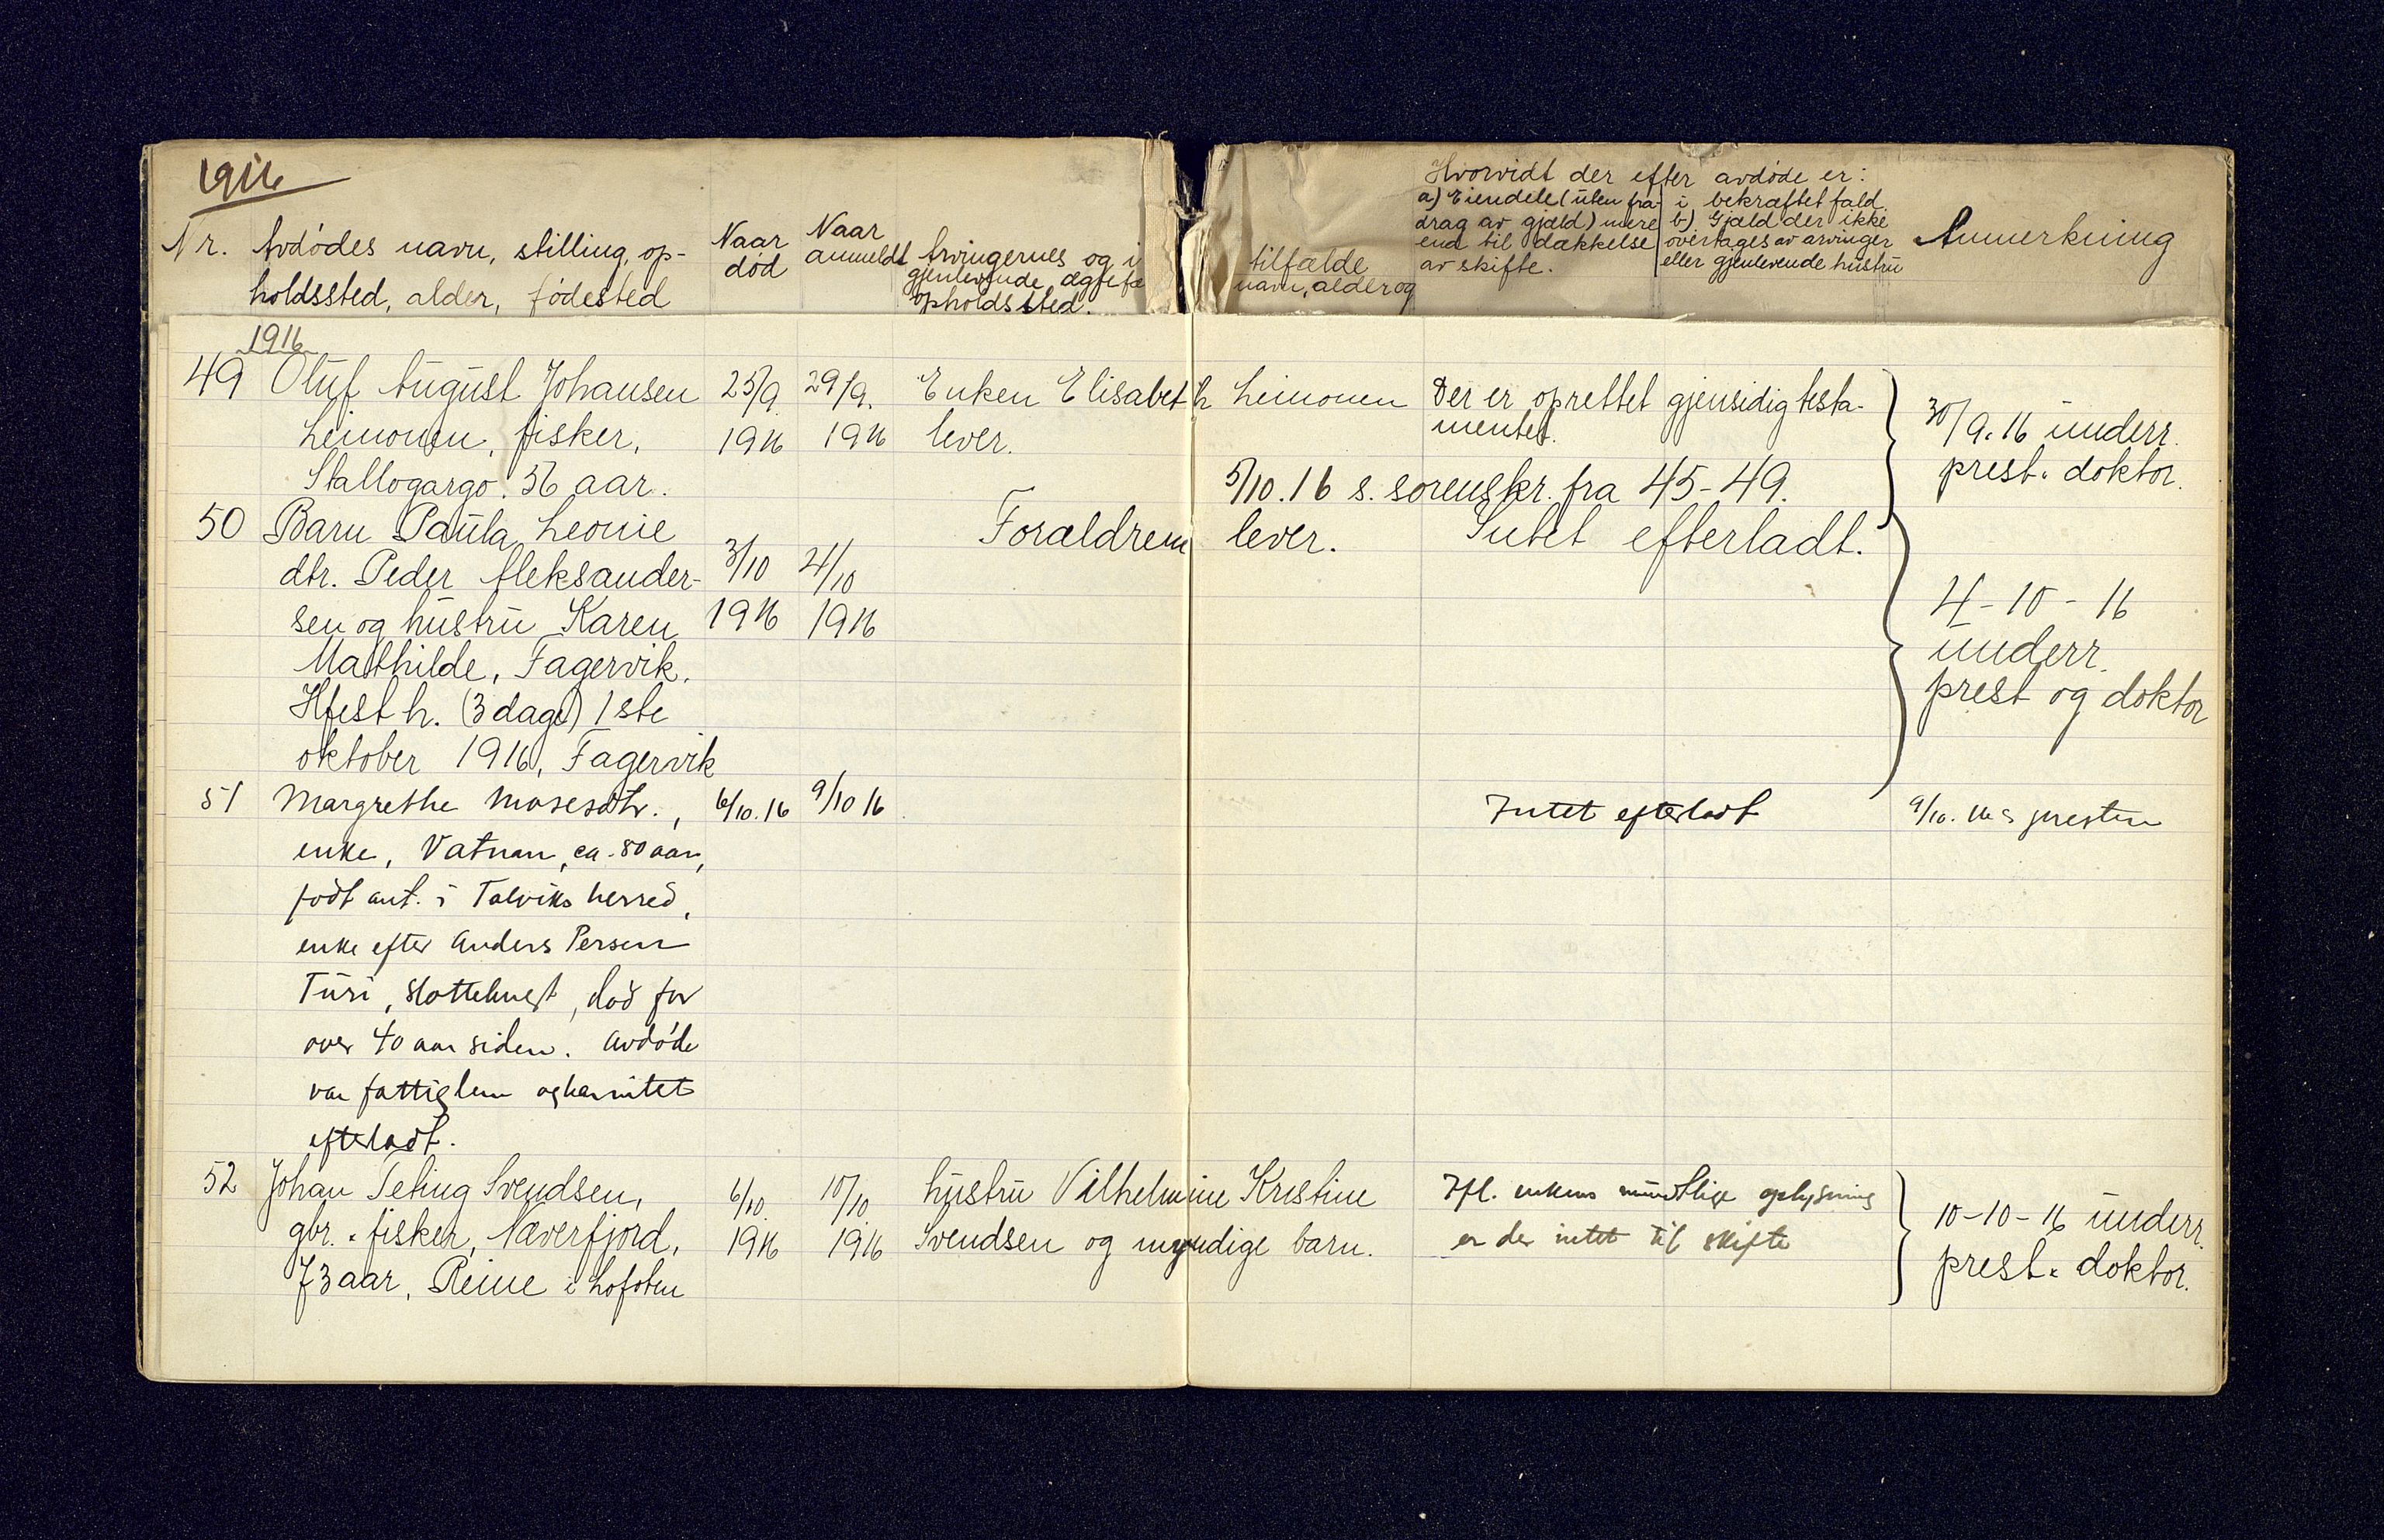 1916
Nr.
Avdødes navn, stilling, op-
holdssted, alder, fødested
Naar
død
Naar
anmeldt
Arvingernes og i
gjenlevende ægtefæ
opholdssted.
tilfælde
navn, alder og
Hvorvidt der efter avdøde er:
a) Eiendele (uten fra-
drag av gjæld) mere
end til dækkelse
av skifte.
i bekræftet fald
b) Gjæld der ikke
overtages av arvinger
eller gjenlevende hustru
Anmerkning
1916
49 Oluf August Johansen 25/9 29/9. Enken Elisabeth Leinonen Der er oprettet gjensidig testa-
Leinonen, fisker, 1916 1916 lever. mente.
30/9.16 underr.
Stallogargo. 56 aar.
prest. doktor.
5/10.16 s. sorenskr. fra 45-49.
50 Barn Paula Leonie Forældrene lever. Intet efterladt.
dtr. Peder Aleksander- 3/10 4/10
sen og hustru Karen 1916 1916
4-10-16
Mathilde, Fagervik, underr.
Hfest h. (3 dage) 1ste prest og doktor
oktober 1916, Fagervik
51 Margrethe Mosesdtr., 6/10.16 9/10 16 Intet efterladt 9/10. 16 s presten
enke, Vatnan, ca. 80 aar,
født ant. i Talviks herred,
enke efter Anders Persen
Turi, Slottelnest, død for
over 40 aar siden. Avdøde
var fattiglem og har intet
efterladt.
52 Johan Teting Svendsen, 6/10. 10/10 hustru Vilhelmine Kristine Ifl. enkens mundtlige oplysning
gbr. - fisker, Næverfjord, 1916 1916 Svendsen og myndige barn. er der intet til skifte
10-10-16 underr.
73 aar, Reine i Lofoten
prest. doktor.